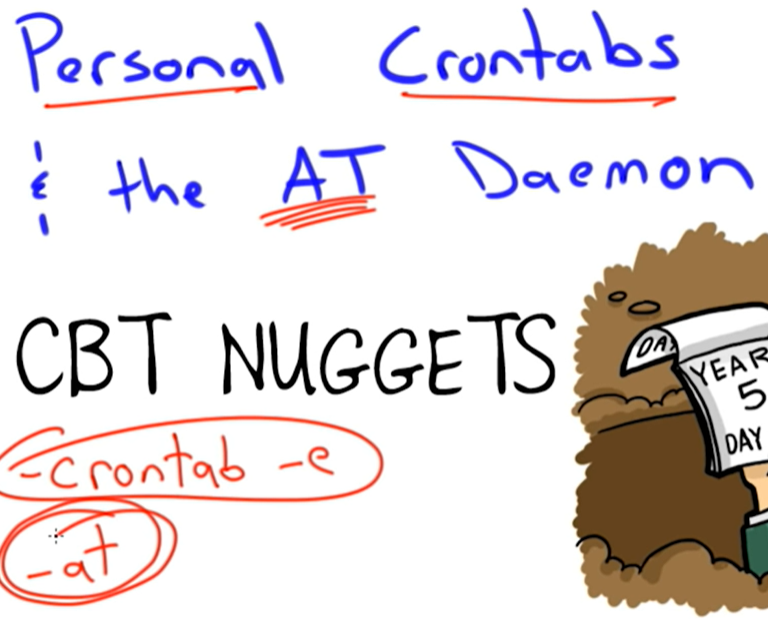 Personal Crontabs
& the AT Daemon
CBT NUGGETS
-crontab -e
-at
DA
YEAR
5
DAY